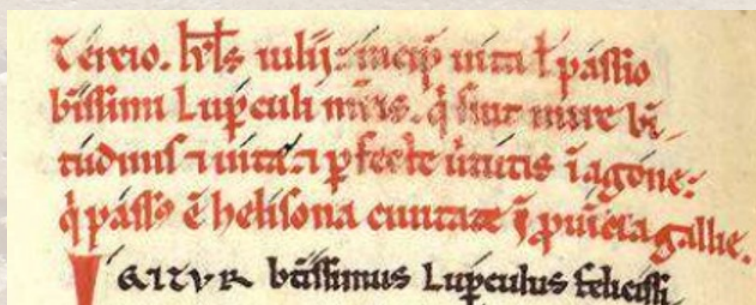 Tercio. kl̅s iulij: incip̅ uita ł passio
b̅issimi Lup̅culi m̅ris. q̅ fuit mire b̅i
tudinis ⁊ uita ⁊ ꝑfecte ùtutis i̅ agone:
q̅ passꝰ e̅ helisona ciuitate i̅ ꝓuīcia gallie.
IGITUR b̅tissimus Lup̅culus felicissi